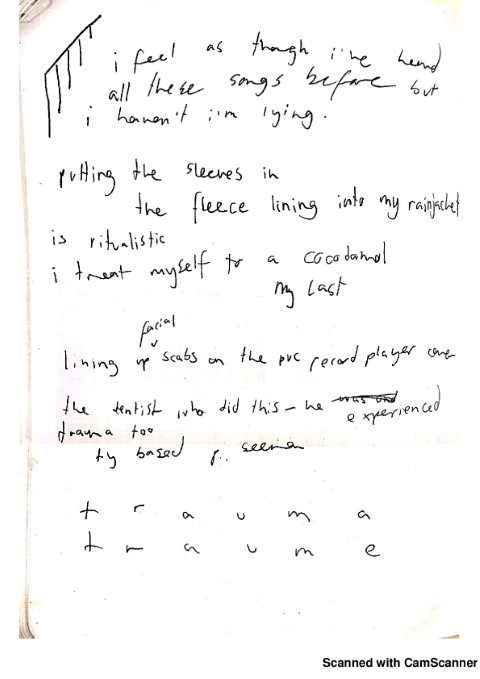 i feel as though i've heard
all these songs before but
i haven't i'm lying.
putting the sleeves in
the fleece lining into my rainjacket
is ritualistic
i treat myself to a cocodamol
my last
facial
lining up scabs on the pvc record player cover
the dentist who did this – he experienced
drama too
ty based
t r a u m a
t r a u m e
Scanned with CamScanner